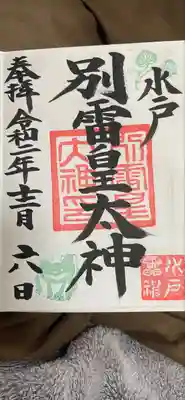 水戸
別雷皇太神
奉拝 令和二年十二月六日
水戸
雷神